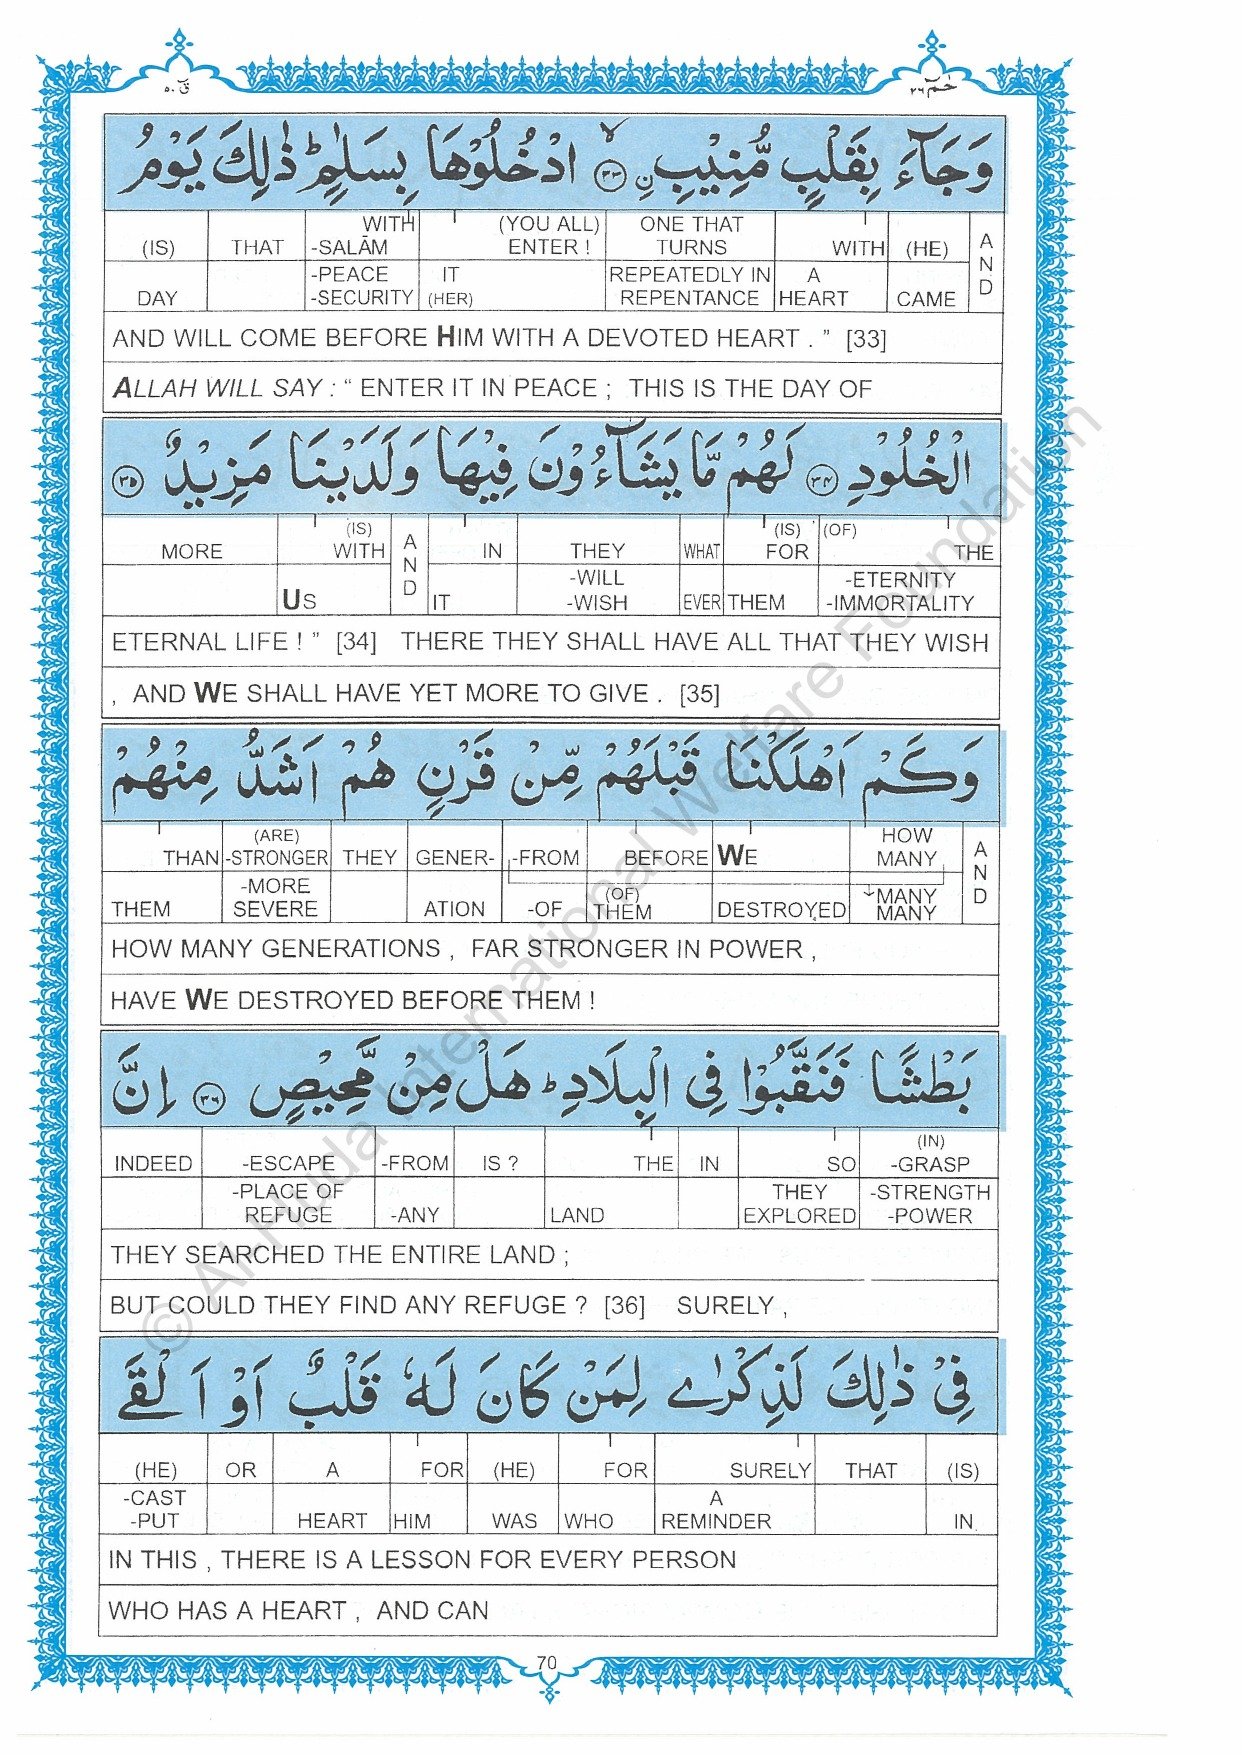 قٓ ٥٠
حٰمٓ ٢٦
وَجَآءَ بِقَلْبٍ مُّنِيْبٍ ۙ﴿۳۳﴾ نِ ادْخُلُوْهَا بِسَلٰمٍ ؕ ذٰلِكَ يَوْمُ
(IS) THAT WITH -SALĀM (YOU ALL) ENTER ! ONE THAT TURNS WITH (HE) AND
DAY -PEACE -SECURITY IT (HER) REPEATEDLY IN REPENTANCE A HEART CAME
AND WILL COME BEFORE HIM WITH A DEVOTED HEART . ” [33]
ALLAH WILL SAY : “ ENTER IT IN PEACE ; THIS IS THE DAY OF
الْخُلُوْدِ ﴿۳۴﴾ لَهُمْ مَّا يَشَآءُوْنَ فِيْهَا وَلَدَيْنَا مَزِيْدٌ ﴿۳۵﴾
MORE (IS) WITH AND IN THEY WHAT (IS) FOR (OF) THE
US IT -WILL -WISH EVER THEM -ETERNITY -IMMORTALITY
ETERNAL LIFE ! ” [34] THERE THEY SHALL HAVE ALL THAT THEY WISH
, AND WE SHALL HAVE YET MORE TO GIVE . [35]
وَكَمْ اَهْلَكْنَا قَبْلَهُمْ مِّنْ قَرْنٍ هُمْ اَشَدُّ مِنْهُمْ
THAN (ARE) -STRONGER THEY GENER- -FROM BEFORE WE HOW MANY AND
THEM -MORE SEVERE ATION -OF (OF) THEM DESTROYED -MANY MANY
HOW MANY GENERATIONS , FAR STRONGER IN POWER ,
HAVE WE DESTROYED BEFORE THEM !
بَطْشًا فَنَقَّبُوْا فِى الْبِلَادِ ؕ هَلْ مِنْ مَّحِيْصٍ ﴿۳۶﴾ اِنَّ
INDEED -ESCAPE -FROM IS ? THE IN SO (IN) -GRASP
-PLACE OF REFUGE -ANY LAND THEY EXPLORED -STRENGTH -POWER
THEY SEARCHED THE ENTIRE LAND ;
BUT COULD THEY FIND ANY REFUGE ? [36] SURELY ,
فِىْ ذٰلِكَ لَذِكْرٰى لِمَنْ كَانَ لَهٗ قَلْبٌ اَوْ اَلْقَى
(HE) OR A FOR (HE) FOR SURELY THAT (IS)
-CAST -PUT HEART HIM WAS WHO A REMINDER IN
IN THIS , THERE IS A LESSON FOR EVERY PERSON
WHO HAS A HEART , AND CAN
70
© Al-Huda International Welfare Foundation